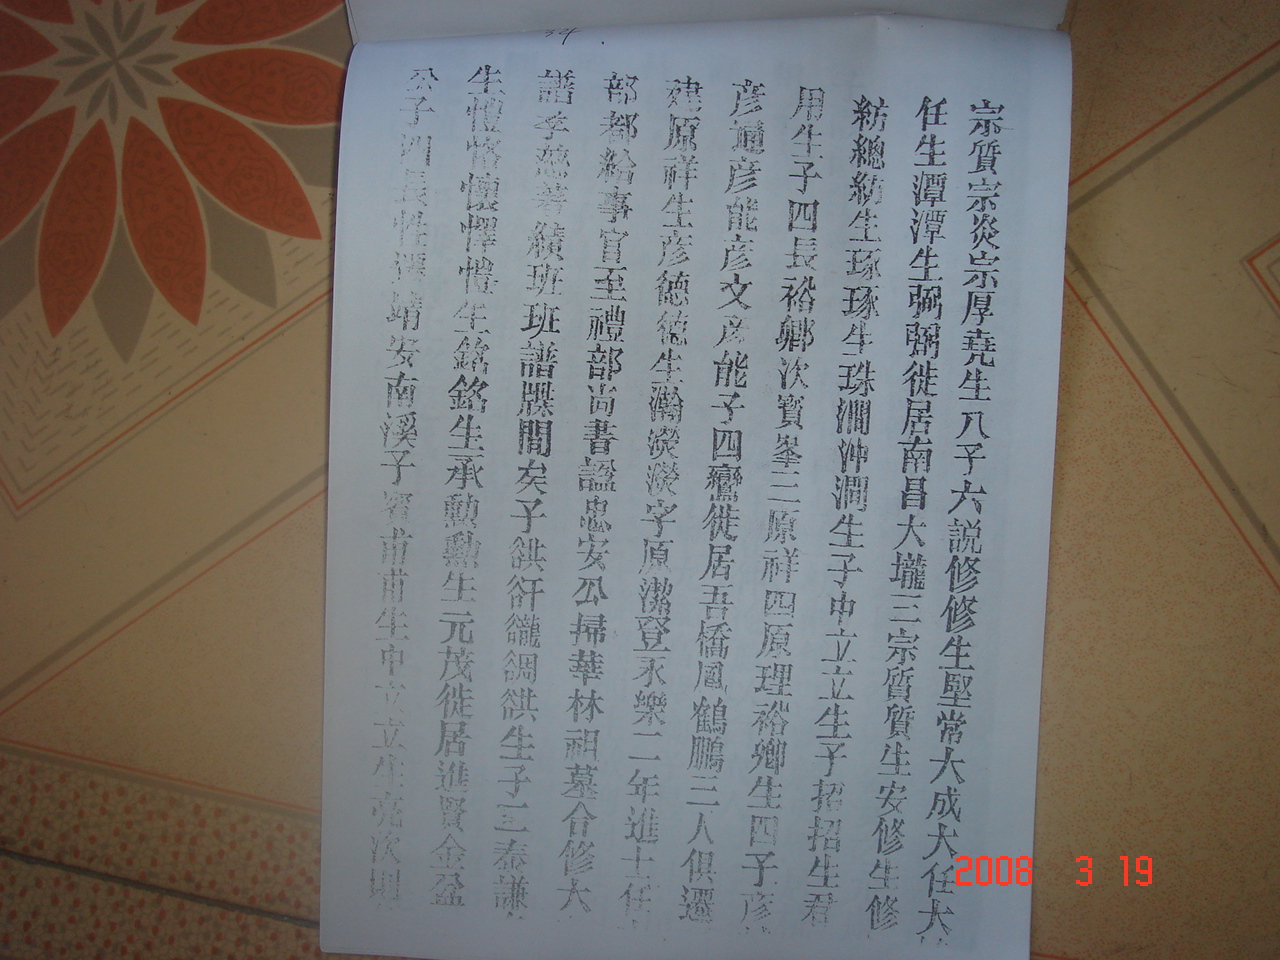 34
宗質宗炎宗厚堯生八子六説修修生堅常大成大任大
任生潭潭生弼弼徙居南昌大壠三宗質質生安修生修
紡總紡生琢琢生珠澗沖澗生子中立立生子招招生君
用生子四長裕鄉次寳峯三原祥四原理裕卿生四子彦
彦通彦能彦文彦能子四鸞徙居吾橋鳳鶴鵬三人俱遷
建原祥生彦德德生瀚濙濙字原潔登永樂二年進士任
部都給事官至禮部尚書諡忠安公掃華林祖墓合修大
譜季慈著績班班譜牒間矣子谼谺谾生子三泰謙
生愷恪懷懌愷生銘銘生承勲勲生元茂徙居進賢金盈
公子四長性遷靖安南溪子甫甫生中立立生亮次則
2008 3 19